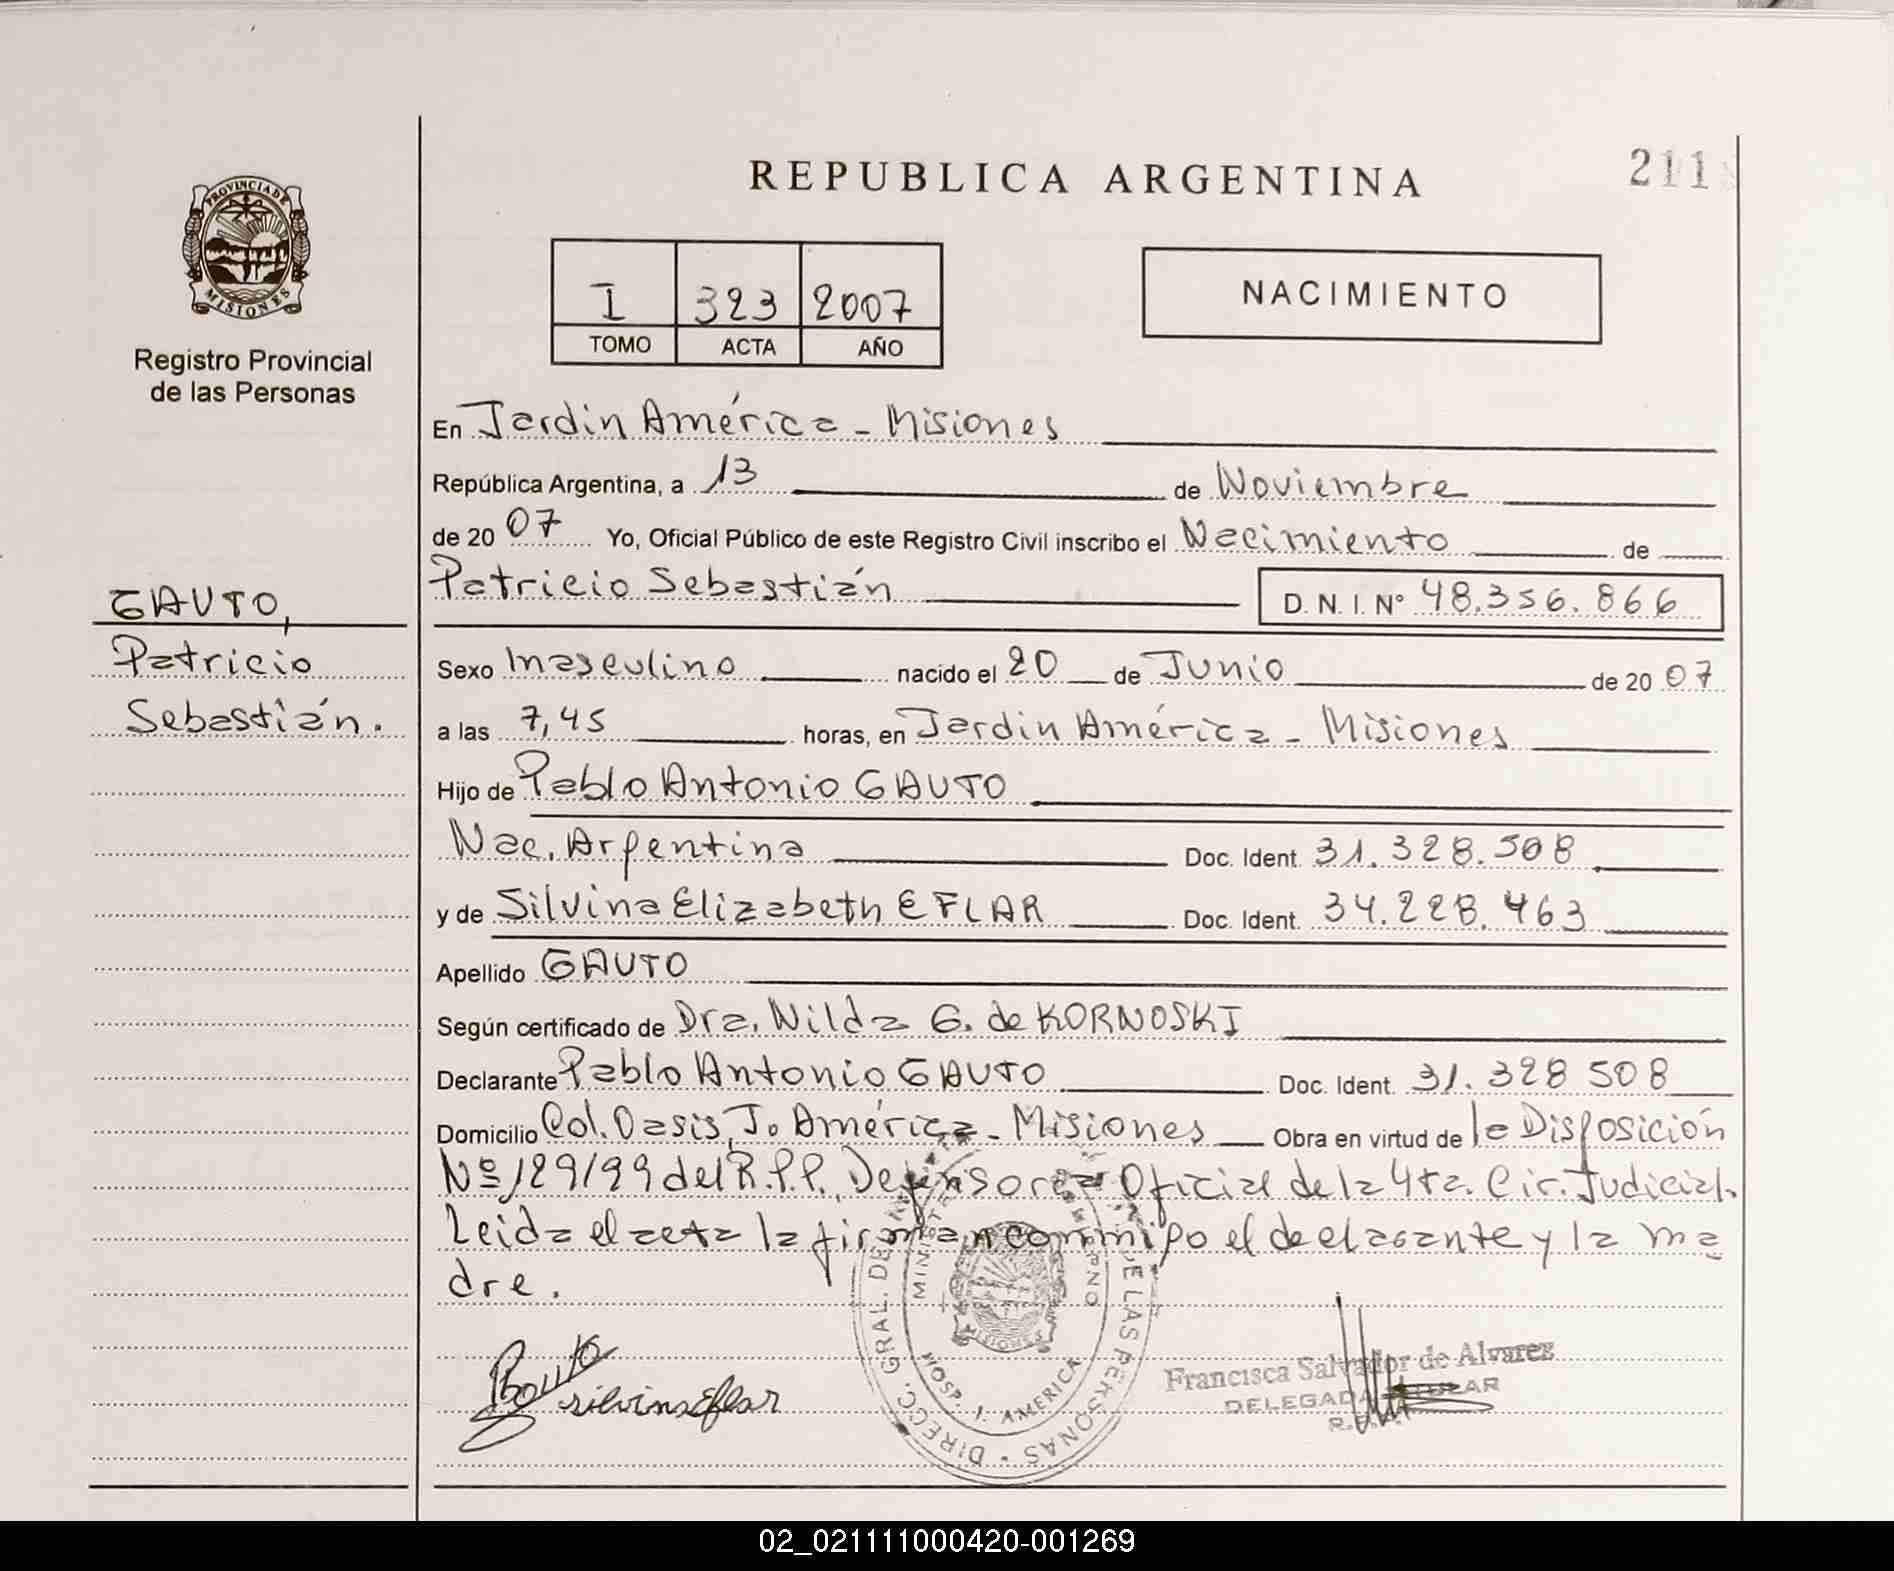 REPUBLICA ARGENTINA
211
PROVINCIA DE
MISIONES
Registro Provincial
de las Personas
I 323 2007
TOMO ACTA AÑO
NACIMIENTO
En Jardin América - Misiones
República Argentina, a 13 de Noviembre
de 20 07 Yo, Oficial Público de este Registro Civil inscribo el Nacimiento de
Patricio Sebastián D. N. I. Nº 48.356.866
GAUTO,
Patricio
Sebastián.
Sexo masculino nacido el 20 de Junio de 20 07
a las 7,45 horas, en Jardin América - Misiones
Hijo de Pablo Antonio GAUTO
Nac. Argentina Doc. Ident. 31.328.508
y de Silvina Elizabeth EFLAR Doc. Ident. 34.228.463
Apellido GAUTO
Según certificado de Dra. Nilda G. de KORNOSKI
Declarante Pablo Antonio GAUTO Doc. Ident. 31.328 508
Domicilio Col. Oasis, J. América - Misiones Obra en virtud de la Disposición
Nº 129/99 del R.P.P., Defensora Oficial de la 4ta. Cir. Judicial.
Leida el acta la firman conmigo el declarante y la ma
dre.
silvina Eflar
DIRECC. GRAL. DE LAS PERSONAS
HOSP. J. AMERICA
MISIONES
Francisca Salvador de Alvarez
DELEGADA TITULAR
02_021111000420-001269